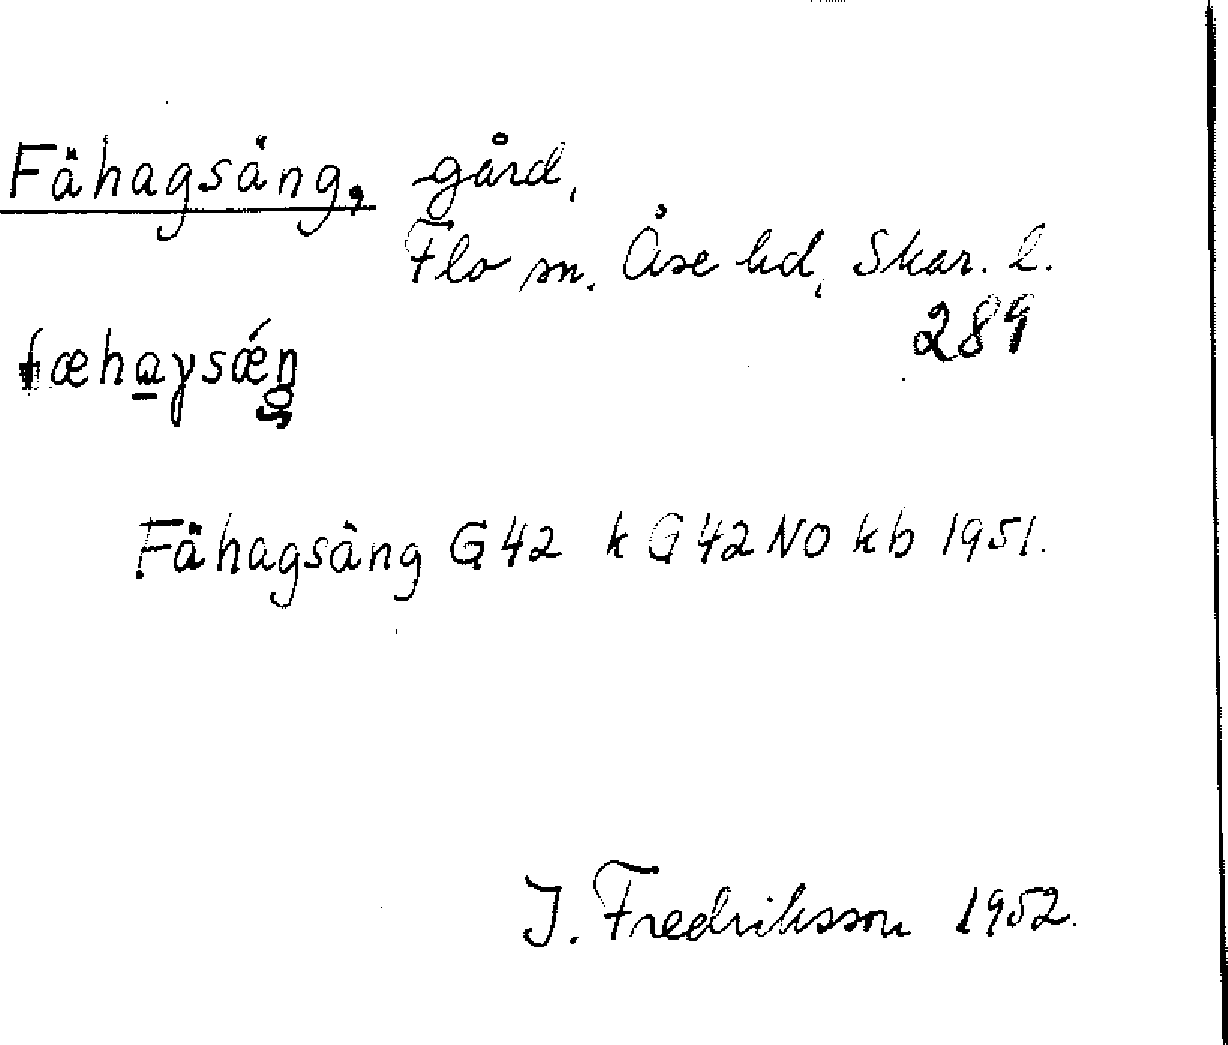 Fähagsäng, gård,
Flo sn. Åse hd, Skar. l.
289
fæhaγsǽŋ
Fähagsäng G 42 k G 42 NO kb 1951.
J. Fredriksson 1952.